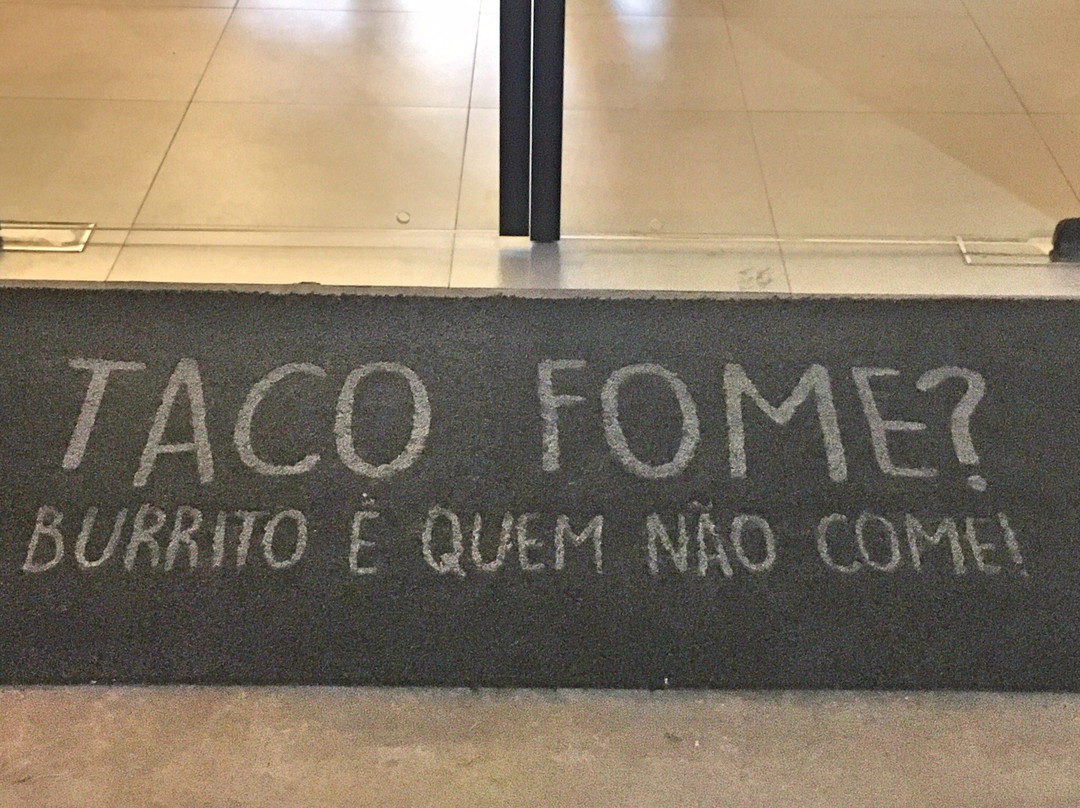 TACO FOME?
BURRITO É QUEM NÃO COME!